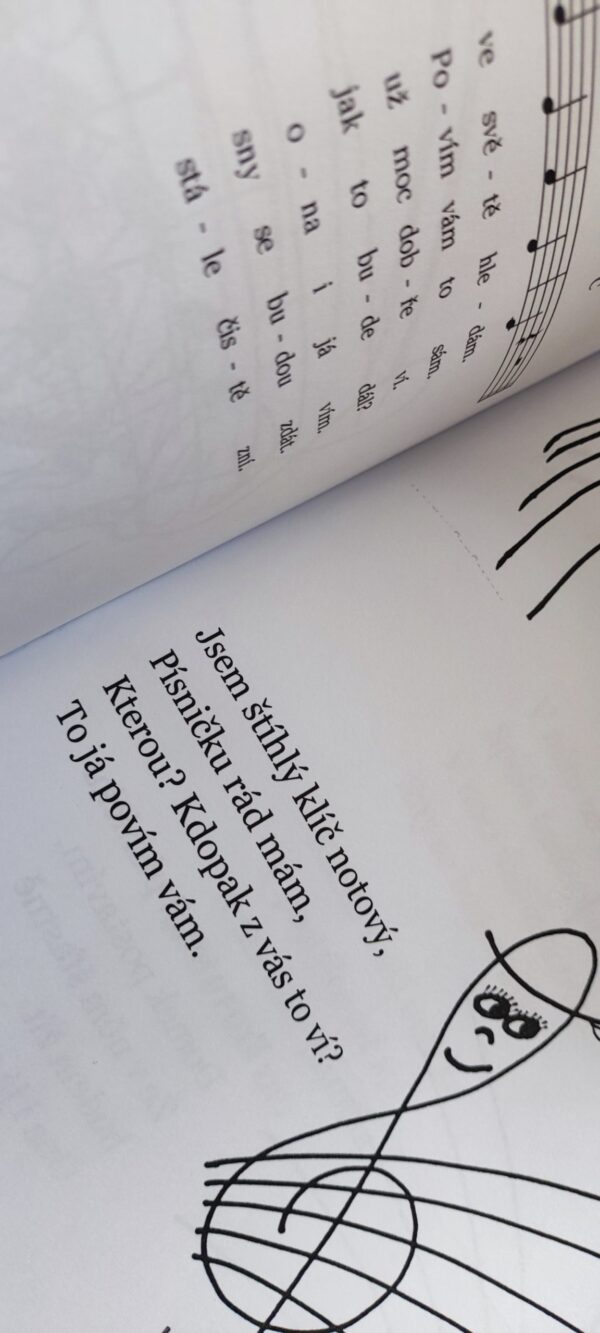 ve svě - tě hle - dám.
Po - vím vám to sám.
už moc dob - ře ví.
jak to bu - de dál?
o - na i já vím.
sny se bu - dou zdát.
stá - le čis - tě zní.
Jsem štíhlý klíč notový,
Písničku rád mám,
Kterou? Kdopak z vás to ví?
To já povím vám.